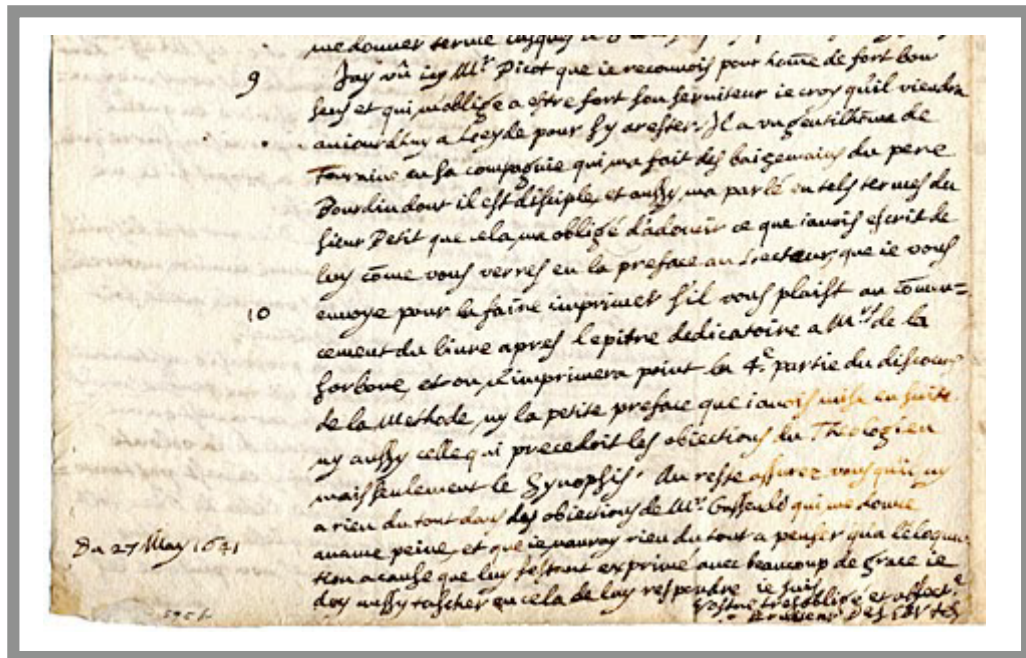 me donner terme jusques
9 Jay vû icy Mr. Picot que ie reconnois pour home de fort bon
sens et qui m'oblige a estre fort son seruiteur ie croy qu'il viendra
auiourdhuy a Leyde pour sy arester. Il a vn gentilhome de
Touraine en sa compagnie qui ma fait des baizemains du pere
Bourdin dont il est disciple, et aussy ma parlé en tels termes du
sieur Petit que cela ma obligé d'adoucir ce que iauois escrit de
luy come vous verres en la preface au Lecteur, que ie vous
10 enuoye pour la faire imprimer s'il vous plaist au comen=
cement du liure apres l'epitre dedicatoire a Mrs. de la
Sorbone, et on n'imprimera point la 4e. partie du discours
de la Methode, ny la petite preface que iauois mise en suite
ny aussy celle qui precedoit les obiections du Theologien
mais seulement le Synopsis. Au reste assurez vous qu'il ny
a rien du tout dans les obiections de Mr. Gassendi qui me donne
aucune peine, et que ie nauray rien du tout a penser qua l'elequu=
Du 27 May 1641
tion a cause que luy sestant exprimé auec beaucoup de grace ie
doy aussy tascher en cela de luy respondre ie suis
Vostre tres obligé et affect.é
seruiteur Descartes